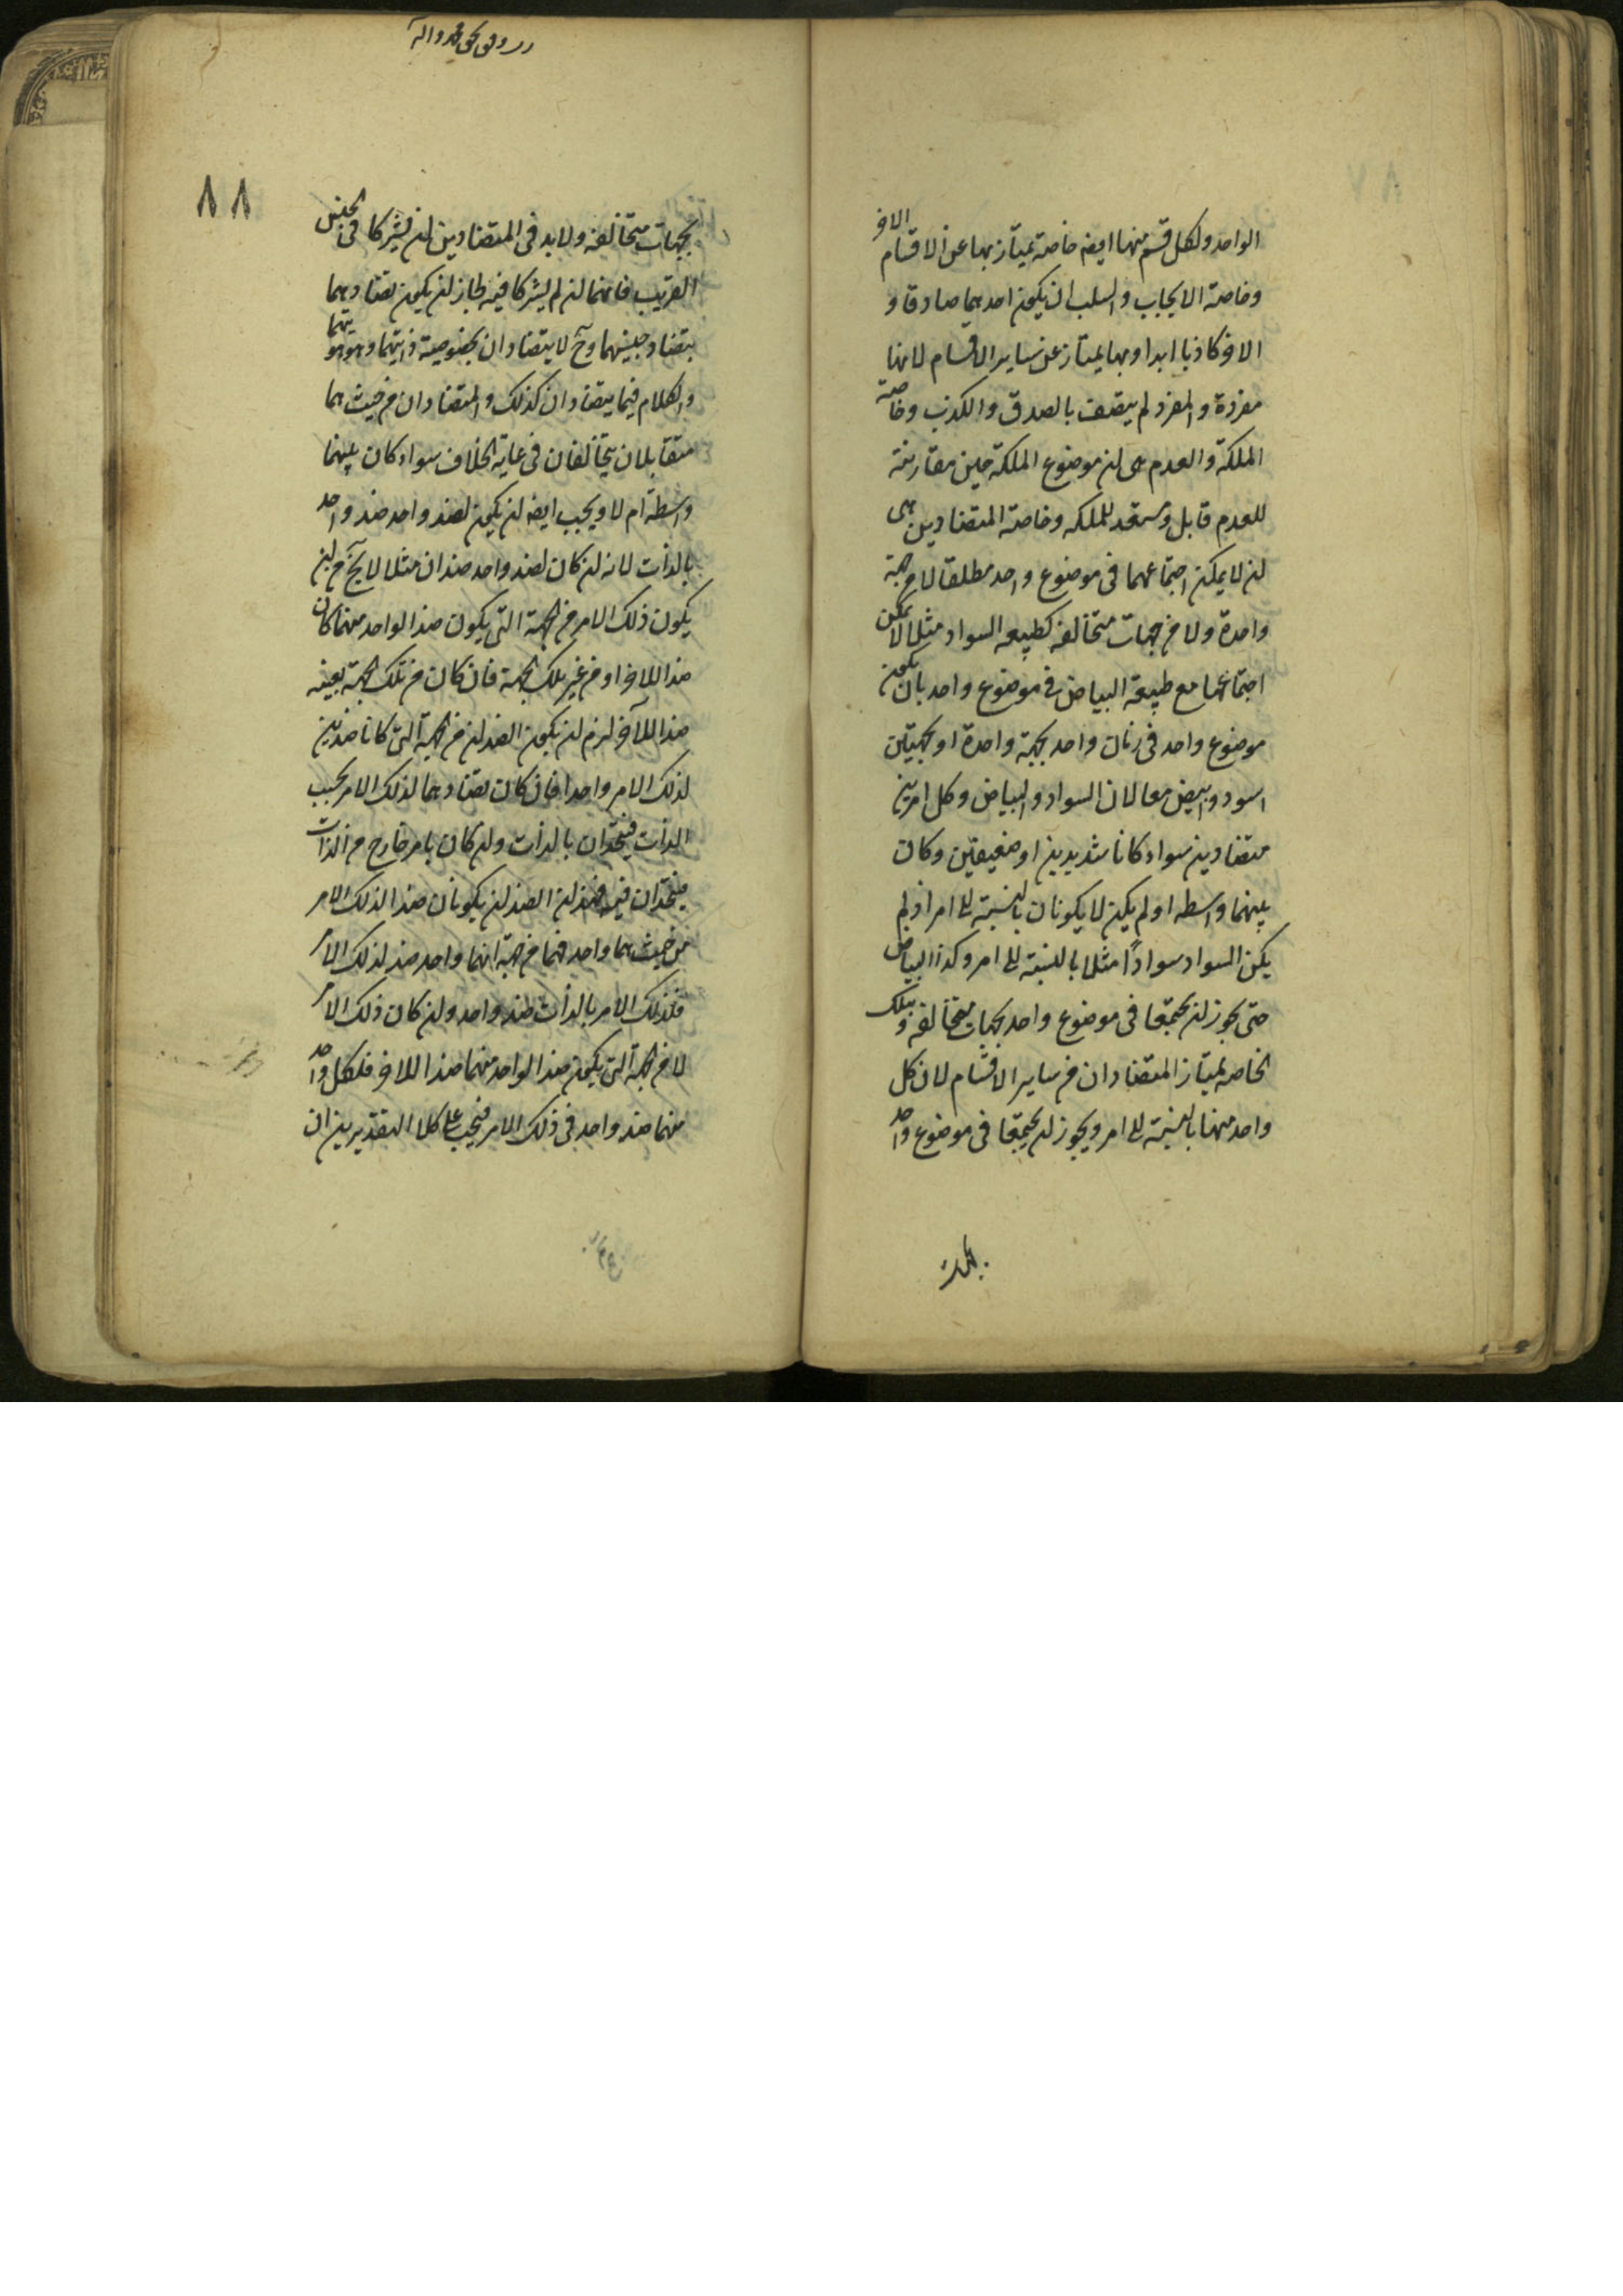 الواحد ولكل قسم منها ايضه خاصة يمتاز بها عن الاقسام الاخر
وخاصة الايجاب والسلب ان يكون احدهما صادقا و
الاخر كاذبا ابدا وبها يمتاز عن ساير الاقسام لانها
مفردة والمفرد لم يتصف بالصدق والكذب وخاصة
الملكة والعدم هى ان موضوع الملكة حين مقارنة
للعدم قابل ومستعد للملكه وخاصة المتضادين هى
ان لا يمكن اجتماعهما فى موضوع واحد مطلقا لا من جهة
واحدة ولا من جهات متخالفه كطبيعه السواد مثلا لا يمكن
اجتماعها مع طبيعة البياض فى موضوع واحد بان يكون
موضوع واحد فى زمان واحد بجهة واحدة او بجهتين
اسود وابيض معا لان السواد والبياض وكل امرين
متضادين سواء كانا شديدين او ضعيفين وكان
بينهما واسطه او لم يكن لا يكونان بالنسبة الى امر اذ لم
يكن السواد سوادًا مثلا بالنسبة الى امر وكذا البياض
حتى يجوز ان يجتمعا فى موضوع واحد بجهات متخالفه وبتلك
الخاصه يمتاز المتضادان من ساير الاقسام لان كل
واحد منها بالنسبة الى امر ويجوز ان يجتمعا فى موضوع واحد
بجهات
٨٨
بجهات متخالفه ولابد فى المتضادين ان يشتركا فى الجنس
القريب فانهما ان لم يشتركا فيه لجاز ان يكون تضادهما
بتضاد جنسيهما وح لا يتضادان بخصوصية ذاتيهما وهوهويتهما
والكلام فيما يتضادان كذلك والمتضادان من حيث هما
متقابلان يتخالفان فى غاية الخلاف سواء كان بينهما
واسطة ام لا ويجب ايضه ان يكون لضد واحد ضد واحد
بالذات لانه ان كان لضد واحد ضدان مثلا لا يخ من ان
يكون ذلك الامر من الجهة التى يكون ضد الواحد منهما كان
ضدا للاخر او من غير تلك الجهة فان كان من تلك الجهة بعينه
ضدا للآخر لزم ان يكون الضدان من الجهة التى كانا ضدين
لذلك الامر واحدا فان كان تضادهما لذلك الامر بحسب
الذات فيتحدان بالذات وان كان بامر خارج من الذات
فيتحدان فيه فهذان الضدان يكونان ضدا لذلك الامر
من حيث هما واحد فهما من جهة انهما واحد ضد لذلك الامر
فلذلك الامر بالذات ضد واحد وان كان ذلك الامر
لا من الجهة التى يكون ضد الواحد منهما ضدا للاخر فلكل واحد
منهما ضد واحد فى ذلك الامر فيجب على كلا التقديرين ان